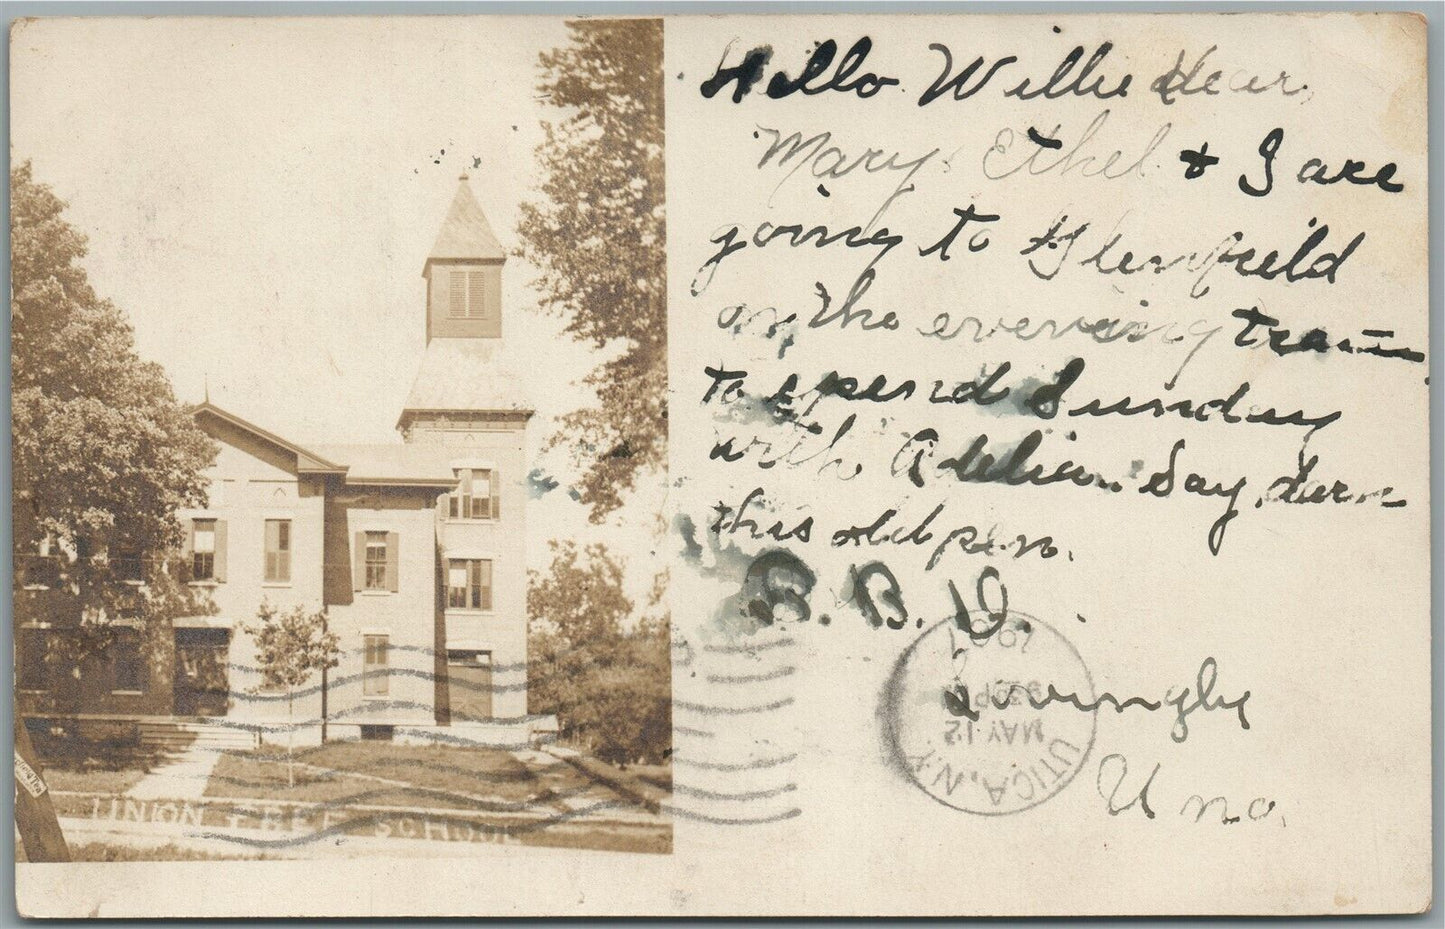 Hello Willie dear,
Mary, Ethel & I are
going to Glenfield
on the evening train
to spend Sunday
with Adelia. Say, darn
this old pen.
B. B. D.
Lovingly
Una.
UTICA, N.Y.
MAY 12
1907
UNION FREE SCHOOL